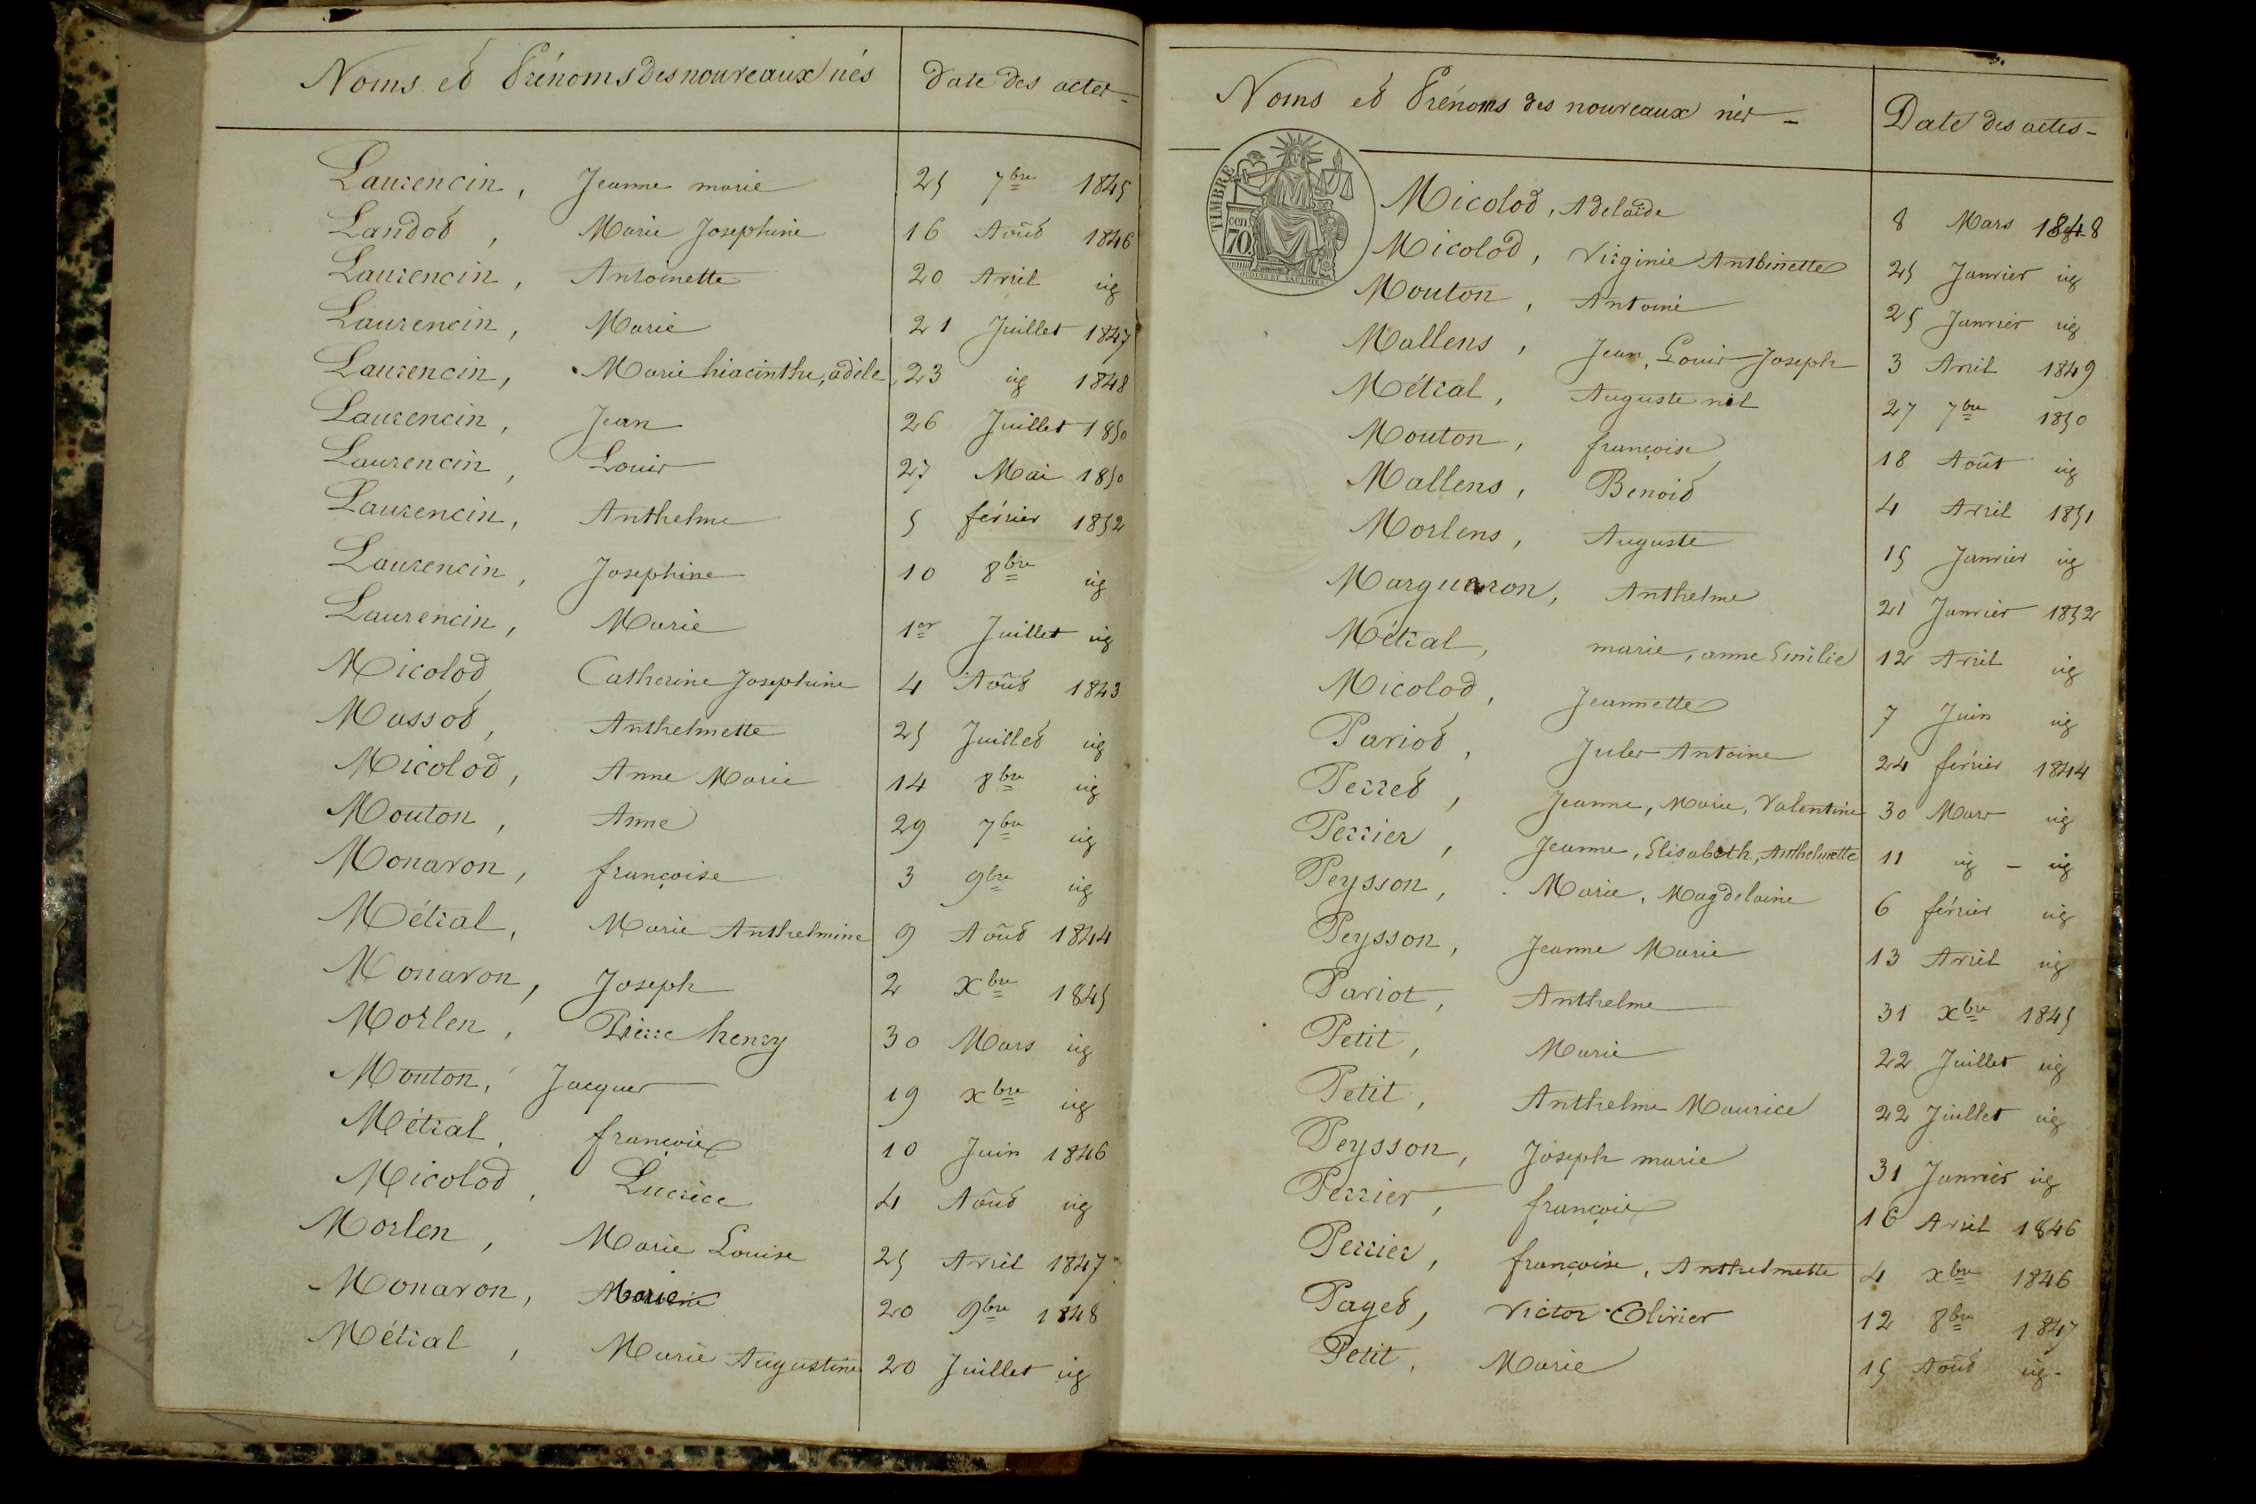 Noms et Prénoms des nouveaux nés Date des actes
Laurencin, Jeanne marie 25 7bre 1845
Landot, Marie Josephine 16 Août 1846
Laurencin, Antoinette 20 Avril ig
Laurencin, Marie 21 Juillet 1847
Laurencin, Marie hiacinthe, adèle 23 ig 1848
Laurencin, Jean 26 Juillet 1850
Laurencin, Louis 27 Mai 1850
Laurencin, Anthelme 5 février 1852
Laurencin, Josephine 10 8bre ig
Laurencin, Marie 1er Juillet ig
Micolod Catherine Josephine 4 Août 1843
Massot, Anthelmette 25 Juillet ig
Micolod, Anne Marie 14 8bre ig
Mouton, Anne 29 7bre ig
Monavon, françoise 3 9bre ig
Métral, Marie Anthelmine 9 Août 1844
Monavon, Joseph 2 xbre 1845
Morlen, Pierre henry 30 Mars ig
Mouton, Jacques 19 xbre ig
Métral, françois 10 Juin 1846
Micolod, Lucrèce 4 Août ig
Morlen, Marie Louise 25 Avril 1847
Monavon, Marie 20 9bre 1848
Métral, Marie Augustine 20 Juillet ig
Noms et Prénoms des nouveaux nés - Date des actes -
TIMBRE
cen
70
Micolod, Adelaïde 8 Mars 1848
Micolod, Virginie Antoinette 25 Janvier ig
Mouton, Antoine 25 Janvier ig
Mallens, Jean, Louis Joseph 3 Avril 1849
Métral, Auguste nil 27 7bre 1850
Mouton, françoise 18 Août ig
Mallens, Benoit 4 Avril 1851
Morlens, Auguste 15 Janvier ig
Margueron, Anthelme 21 Janvier 1852
Métral, marie, anne Emilie 12 Avril ig
Micolod, Jeannette 7 Juin ig
Pariot, Jules Antoine 24 février 1844
Perret, Jeanne, Marie, Valentine 30 Mars ig
Perrier, Jeanne, Elisabeth, Anthelmette 11 ig - ig
Peysson, Marie, Magdelaine 6 février ig
Peysson, Jeanne Marie 13 Avril ig
Pariot, Anthelme 31 xbre 1845
Petit, Marie 22 Juillet ig
Petit, Anthelme Maurice 22 Juillet ig
Peysson, Joseph marie 31 Janvier ig
Perrier, françois 16 Avril 1846
Perrier, françoise, Anthelmette 4 xbre 1846
Paget, Victor Olivier 12 8bre 1847
Petit, Marie 15 Août ig -